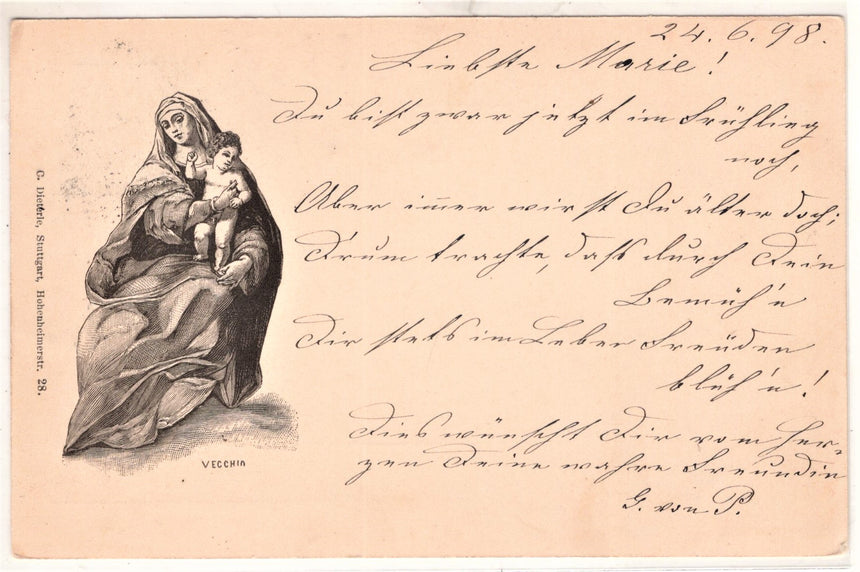 24.6.98.
Liebste Marie!
Du bist zwar jetzt im Frühling
noch,
Aber immer wirst Du älter doch;
D'rum trachte, daß durch Dein
Bemüh'n
Dir stets im Leben Freuden
blüh'n!
Dies wünscht Dir vom Her-
zen Deine wahre Freundin
G. von P.
C. Dieterle, Stuttgart, Hohenheimerstr. 28.
VECCHIA